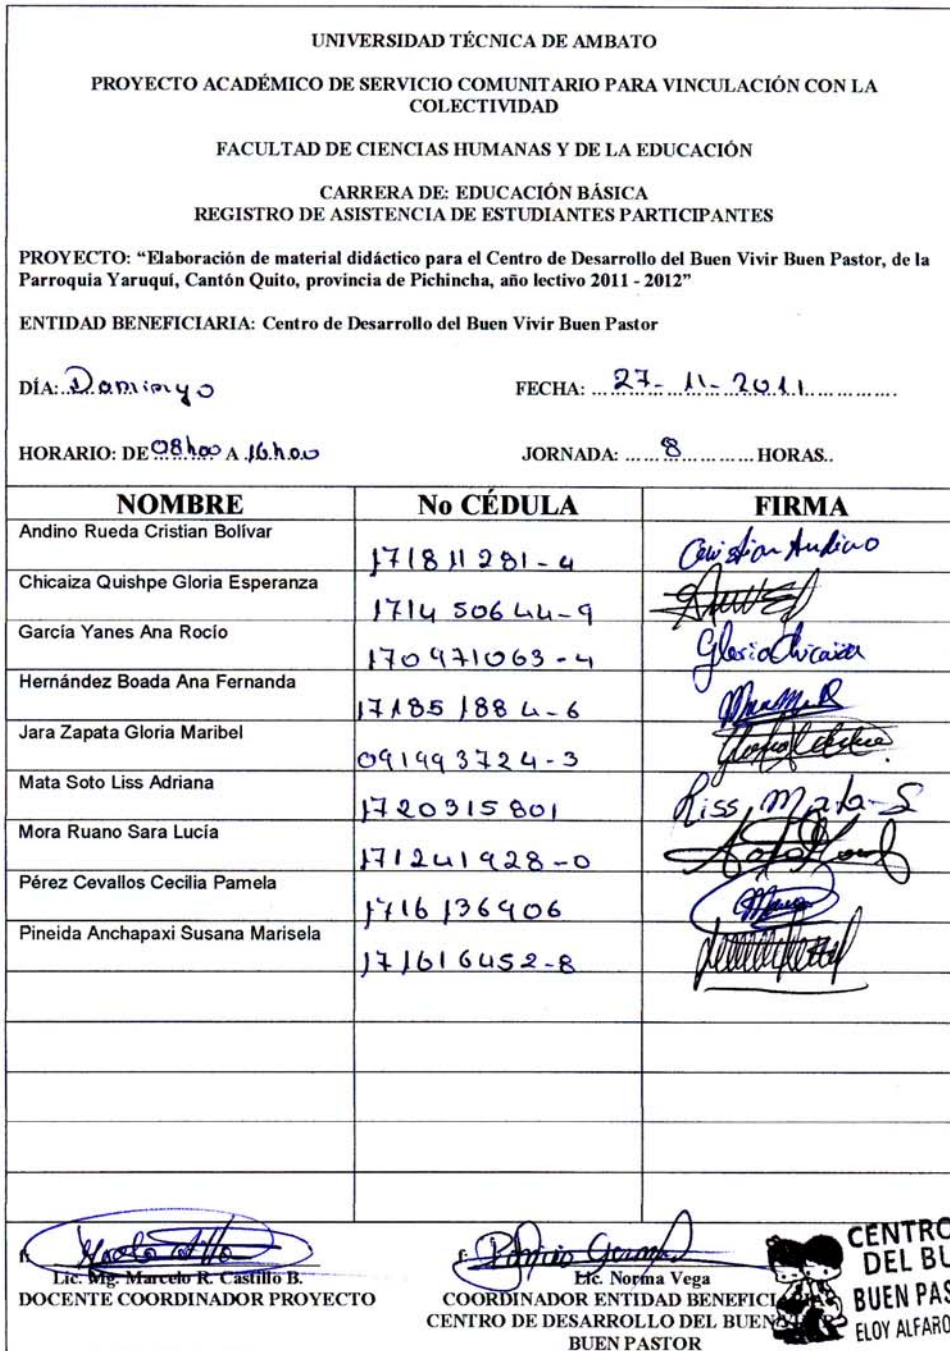 UNIVERSIDAD TÉCNICA DE AMBATO
PROYECTO ACADÉMICO DE SERVICIO COMUNITARIO PARA VINCULACIÓN CON LA
COLECTIVIDAD
FACULTAD DE CIENCIAS HUMANAS Y DE LA EDUCACIÓN
CARRERA DE: EDUCACIÓN BÁSICA
REGISTRO DE ASISTENCIA DE ESTUDIANTES PARTICIPANTES
PROYECTO: “Elaboración de material didáctico para el Centro de Desarrollo del Buen Vivir Buen Pastor, de la
Parroquia Yaruquí, Cantón Quito, provincia de Pichincha, año lectivo 2011 - 2012”
ENTIDAD BENEFICIARIA: Centro de Desarrollo del Buen Vivir Buen Pastor
DÍA: Domingo FECHA: 27-11-2011
HORARIO: DE 08h00 A 16h00 JORNADA: 8 HORAS..
NOMBRE No CÉDULA FIRMA
Andino Rueda Cristian Bolívar 171811281-4 Cristian Andino
Chicaiza Quishpe Gloria Esperanza 171450644-9
García Yanes Ana Rocío 170971063-4 Gloria Chicaiza
Hernández Boada Ana Fernanda 171851884-6
Jara Zapata Gloria Maribel 091993724-3
Mata Soto Liss Adriana 1720315801 Liss Mata S
Mora Ruano Sara Lucía 171241928-0
Pérez Cevallos Cecilia Pamela 1716136906
Pineida Anchapaxi Susana Marisela 171616452-8
f:
Lic. Mg. Marcelo R. Castillo B.
DOCENTE COORDINADOR PROYECTO
f:
Lic. Norma Vega
COORDINADOR ENTIDAD BENEFICI
CENTRO DE DESARROLLO DEL BUEN
BUEN PASTOR
CENTRO
DEL BU
BUEN PAS
ELOY ALFARO